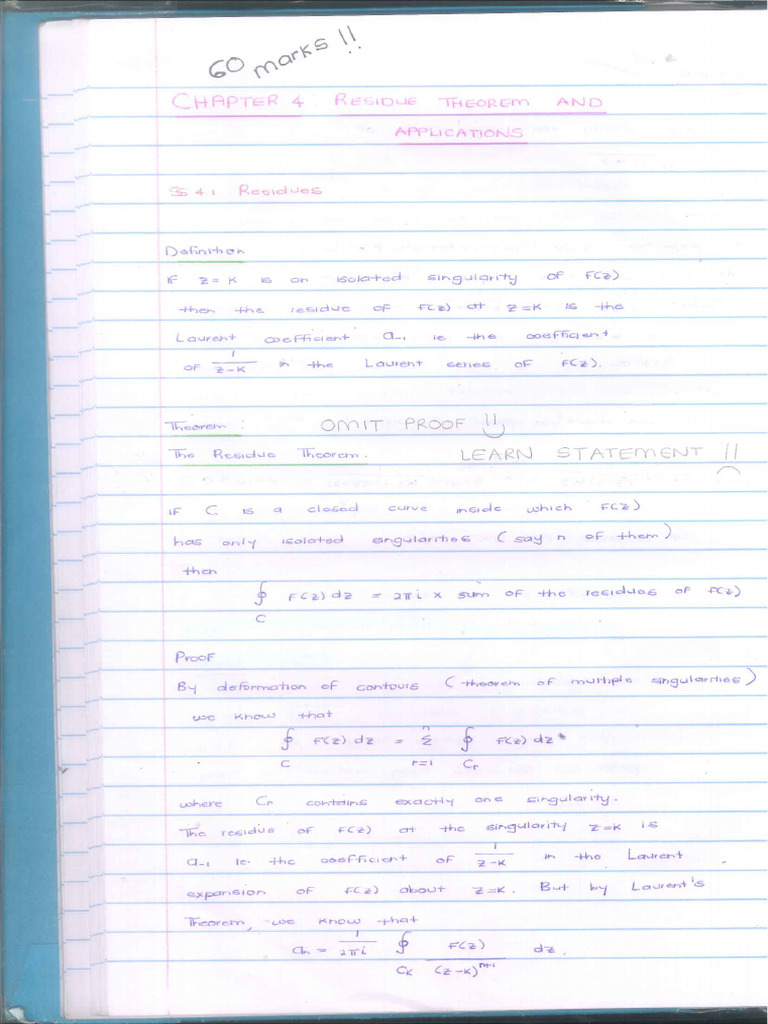 60 marks !!
CHAPTER 4 RESIDUE THEOREM AND
APPLICATIONS
§ 4.1 Residues
Definition
If z = k is an isolated singularity of f(z)
then the residue of f(z) at z=k is the
Laurent coefficient a₋₁ ie the coefficient
of 1/(z-k) in the Laurent series of f(z).
Theorem : OMIT PROOF !!
The Residue Theorem. LEARN STATEMENT !!
If C is a closed curve inside which f(z)
has only isolated singularities (say n of them)
then
∮_C f(z) dz = 2πi × sum of the residues of f(z)
Proof
By deformation of contours (theorem of multiple singularities)
we know that
∮_C f(z) dz = Σ_{r=1}^{n} ∮_{C_r} f(z) dz
where C_r contains exactly one singularity.
The residue of f(z) at the singularity z=k is
a₋₁ ie. the coefficient of 1/(z-k) in the Laurent
expansion of f(z) about z=k. But by Laurent's
Theorem, we know that
a_n = 1/(2πi) ∮_{C_k} f(z)/(z-k)^{n+1} dz.